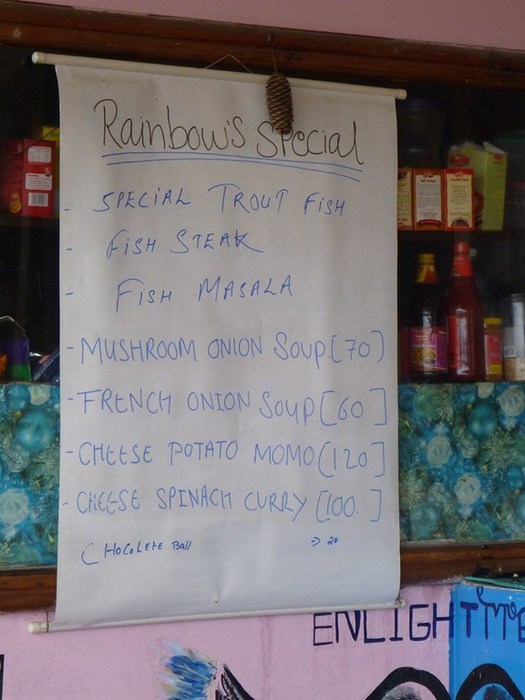 Rainbow's Special
- SPECIAL TROUT FISH
- FISH STEAK
- FISH MASALA
- MUSHROOM ONION SOUP [70)
- FRENCH ONION SOUP. [60]
- CHEESE POTATO MOMO [120]
- CHEESE SPINACH CURRY [100. ]
CHOCOLETE Ball => 20
ENLIGHTME